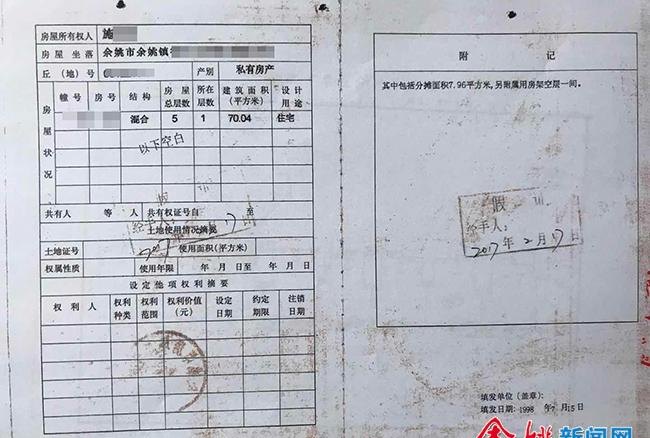 房屋所有权人 施
房屋坐落 余姚市余姚镇
丘(地)号 产别 私有房产
房屋状况
幢号 房号 结构 房屋总层数 所在层数 建筑面积(平方米) 设计用途
混合 5 1 70.04 住宅
以下空白
共有人 等 人 共有权证号自 至
土地使用情况摘要
土地证号 使用面积(平方米)
权属性质 使用年限 年 月 日至 年 月 日
假
经手人:
2017
设定他项权利摘要
权利人 权利种类 权利范围 权利价值(元) 设定日期 约定期限 注销日期
附记
其中包括分摊面积7.96平方米,另附属用房架空层一间。
假
经手人:
2017年2月17日
填发单位(盖章):
填发日期:1998 年7月15日
余姚新闻网